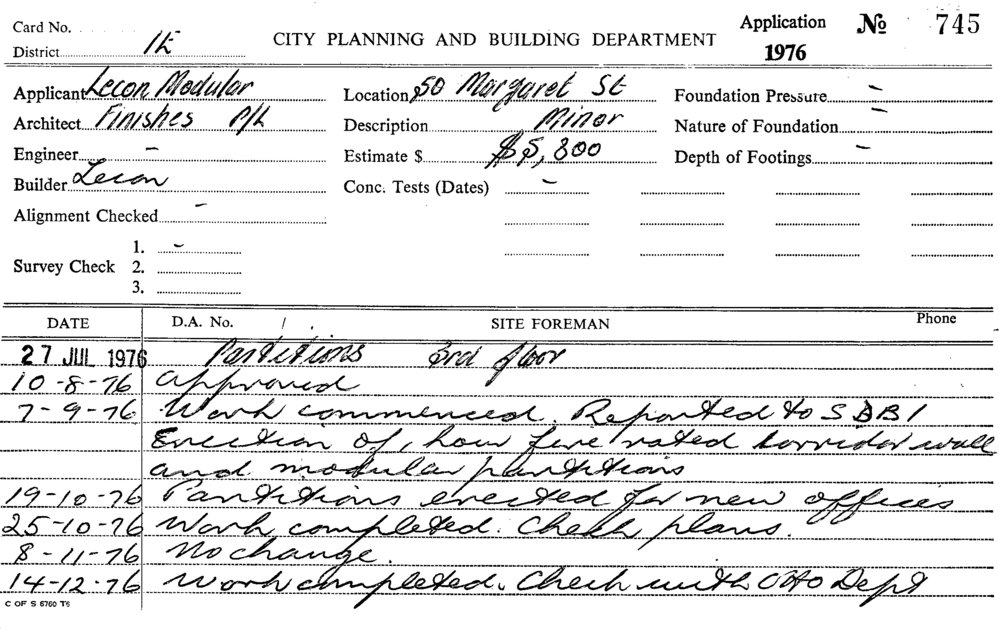 Card No.
District 1E
CITY PLANNING AND BUILDING DEPARTMENT
Application No 745
1976
Applicant Lecon Modular
Architect Finishes P/L
Engineer -
Builder Lecon
Alignment Checked -
Survey Check 1. -
2.
3.
Location 50 Margaret St
Description Minor
Estimate $ $5,800
Conc. Tests (Dates) -
Foundation Pressure -
Nature of Foundation -
Depth of Footings -
DATE D.A. No. / . SITE FOREMAN Phone
27 JUL 1976 Partitions 3rd floor
10-8-76 Approved
7-9-76 Work commenced. Reported to SDBI
Erection of 1 hour fire rated corridor wall
and modular partitions
19-10-76 Partitions erected for new offices
25-10-76 Work completed. Check plans.
8-11-76 No change.
14-12-76 Work completed. Check with Dept
C OF S 6760 T6